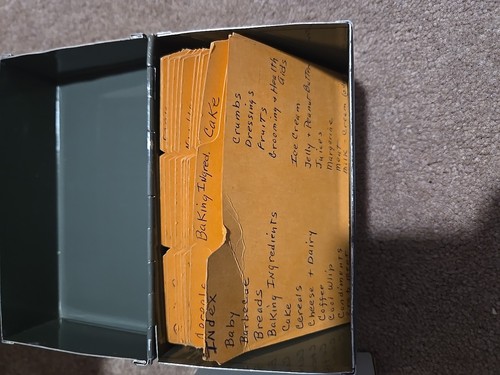 Cake
Baking Ingred.
Index
Baby
Barbecue
Breads
Baking Ingredients
Cake
Cereals
Cheese + Dairy
Coffee
Cool Whip
Condiments
Crumbs
Dressings
Fruits
Grooming + Health
Aids
Ice Cream
Jelly + Peanut Butter
Juices
Margarine
Meat